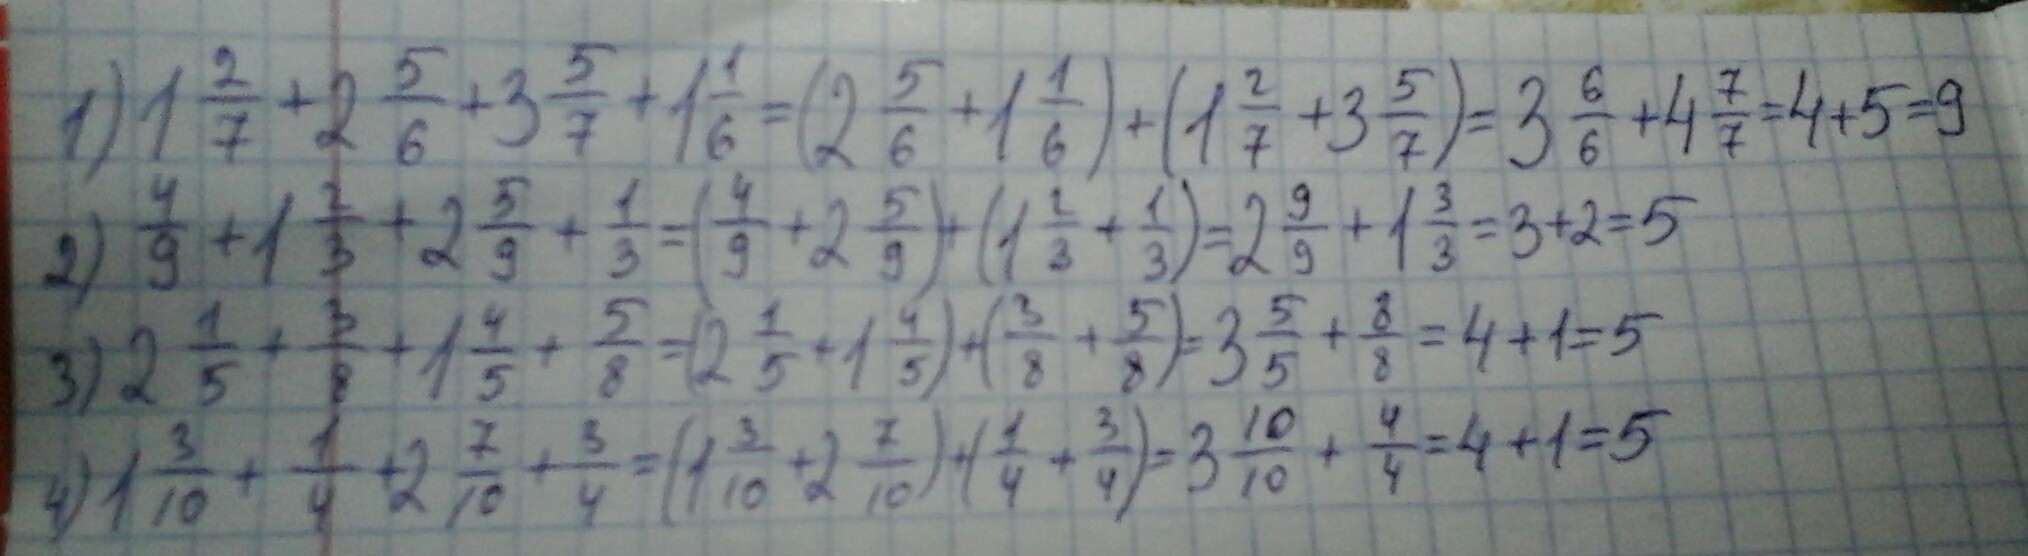 1) 1 2/7 + 2 5/6 + 3 5/7 + 1 1/6 = (2 5/6 + 1 1/6) + (1 2/7 + 3 5/7) = 3 6/6 + 4 7/7 = 4 + 5 = 9
2) 4/9 + 1 2/3 + 2 5/9 + 1/3 = (4/9 + 2 5/9) + (1 2/3 + 1/3) = 2 9/9 + 1 3/3 = 3 + 2 = 5
3) 2 1/5 + 3/8 + 1 4/5 + 5/8 = (2 1/5 + 1 4/5) + (3/8 + 5/8) = 3 5/5 + 8/8 = 4 + 1 = 5
4) 1 3/10 + 1/4 + 2 7/10 + 3/4 = (1 3/10 + 2 7/10) + (1/4 + 3/4) = 3 10/10 + 4/4 = 4 + 1 = 5